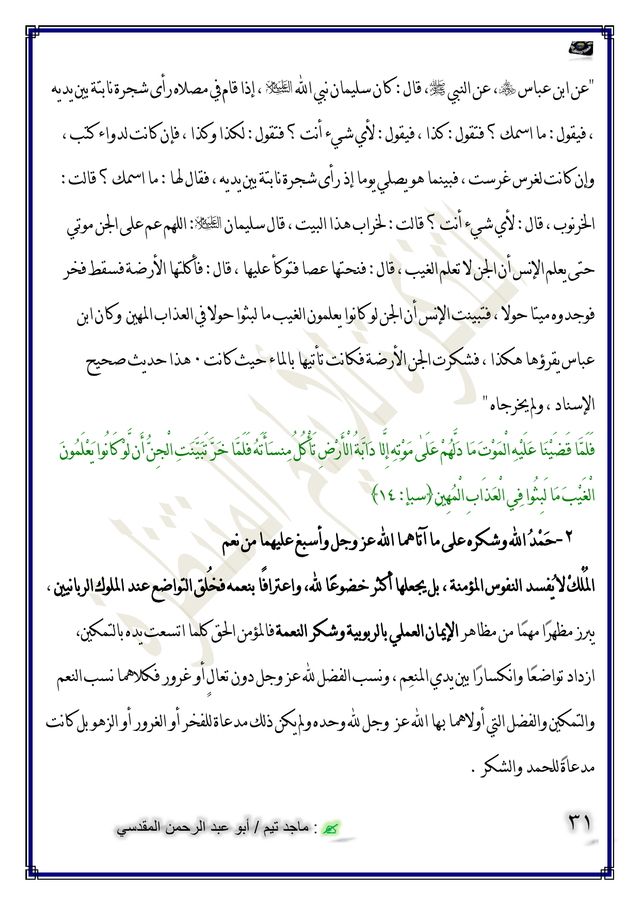 "عن ابن عباس ﷺ، عن النبي ﷺ، قال : كان سليمان نبي الله ﷺ ، إذا قام في مصلاه رأى شجرة نابتة بين يديه
، فيقول : ما اسمك ؟ فتقول : كذا ، فيقول : لأي شيء أنت ؟ فتقول : لكذا وكذا ، فإن كانت لدواء كتب ،
وإن كانت لغرس غرست ، فبينما هو يصلي يوما إذ رأى شجرة نابتة بين يديه ، فقال لها : ما اسمك ؟ قالت :
الخرنوب ، قال : لأي شيء أنت ؟ قالت : لخراب هذا البيت ، قال سليمان : اللهم عم على الجن موتي
حتى يعلم الإنس أن الجن لا تعلم الغيب ، قال : فنحتها عصا فتوكأ عليها ، قال : فأكلتها الأرضة فسقط فخر
فوجدوه ميتا حولا ، فتبينت الإنس أن الجن لو كانوا يعلمون الغيب ما لبثوا حولا في العذاب المهين وكان ابن
عباس يقرؤها هكذا ، فشكرت الجن الأرضة فكانت تأتيها بالماء حيث كانت . هذا حديث صحيح
الإسناد ، ولم يخرجاه "
فَلَمَّا قَضَيْنَا عَلَيْهِ الْمَوْتَ مَا دَلَّهُمْ عَلَىٰ مَوْتِهِ إِلَّا دَابَّةُ الْأَرْضِ تَأْكُلُ مِنسَأَتَهُ فَلَمَّا خَرَّ تَبَيَّنَتِ الْجِنُّ أَن لَّوْ كَانُوا يَعْلَمُونَ
الْغَيْبَ مَا لَبِثُوا فِي الْعَذَابِ الْمُهِينِ (سبإ : ١٤)
٢-حَمْدُ الله وشكره على ما آتاهما الله عز وجل وأسبغ عليهما من نعم
المُلْكُ لا يُفسد النفوس المؤمنة ، بل يجعلها أكثر خضوعًا لله، واعترافًا بنعمه فخُلق التواضع عند الملوك الربانيين ،
يبرز مظهرًا مهمًا من مظاهر الإيمان العملي بالربوبية وشكر النعمة فالمؤمن الحق كلما اتسعت يده بالتمكين،
ازداد تواضعًا وانكسارًا بين يدي المنعِم ، ونسب الفضل لله عز وجل دون تعالٍ أو غرور فكلاهما نسب النعم
والتمكين والفضل التي أولاهما بها الله عز وجل لله وحده ولم يكن ذلك مدعاة للفخر أو الغرور أو الزهو بل كانت
مدعاةً للحمد والشكر .
: ماجد تيم / أبو عبد الرحمن المقدسي
٣١